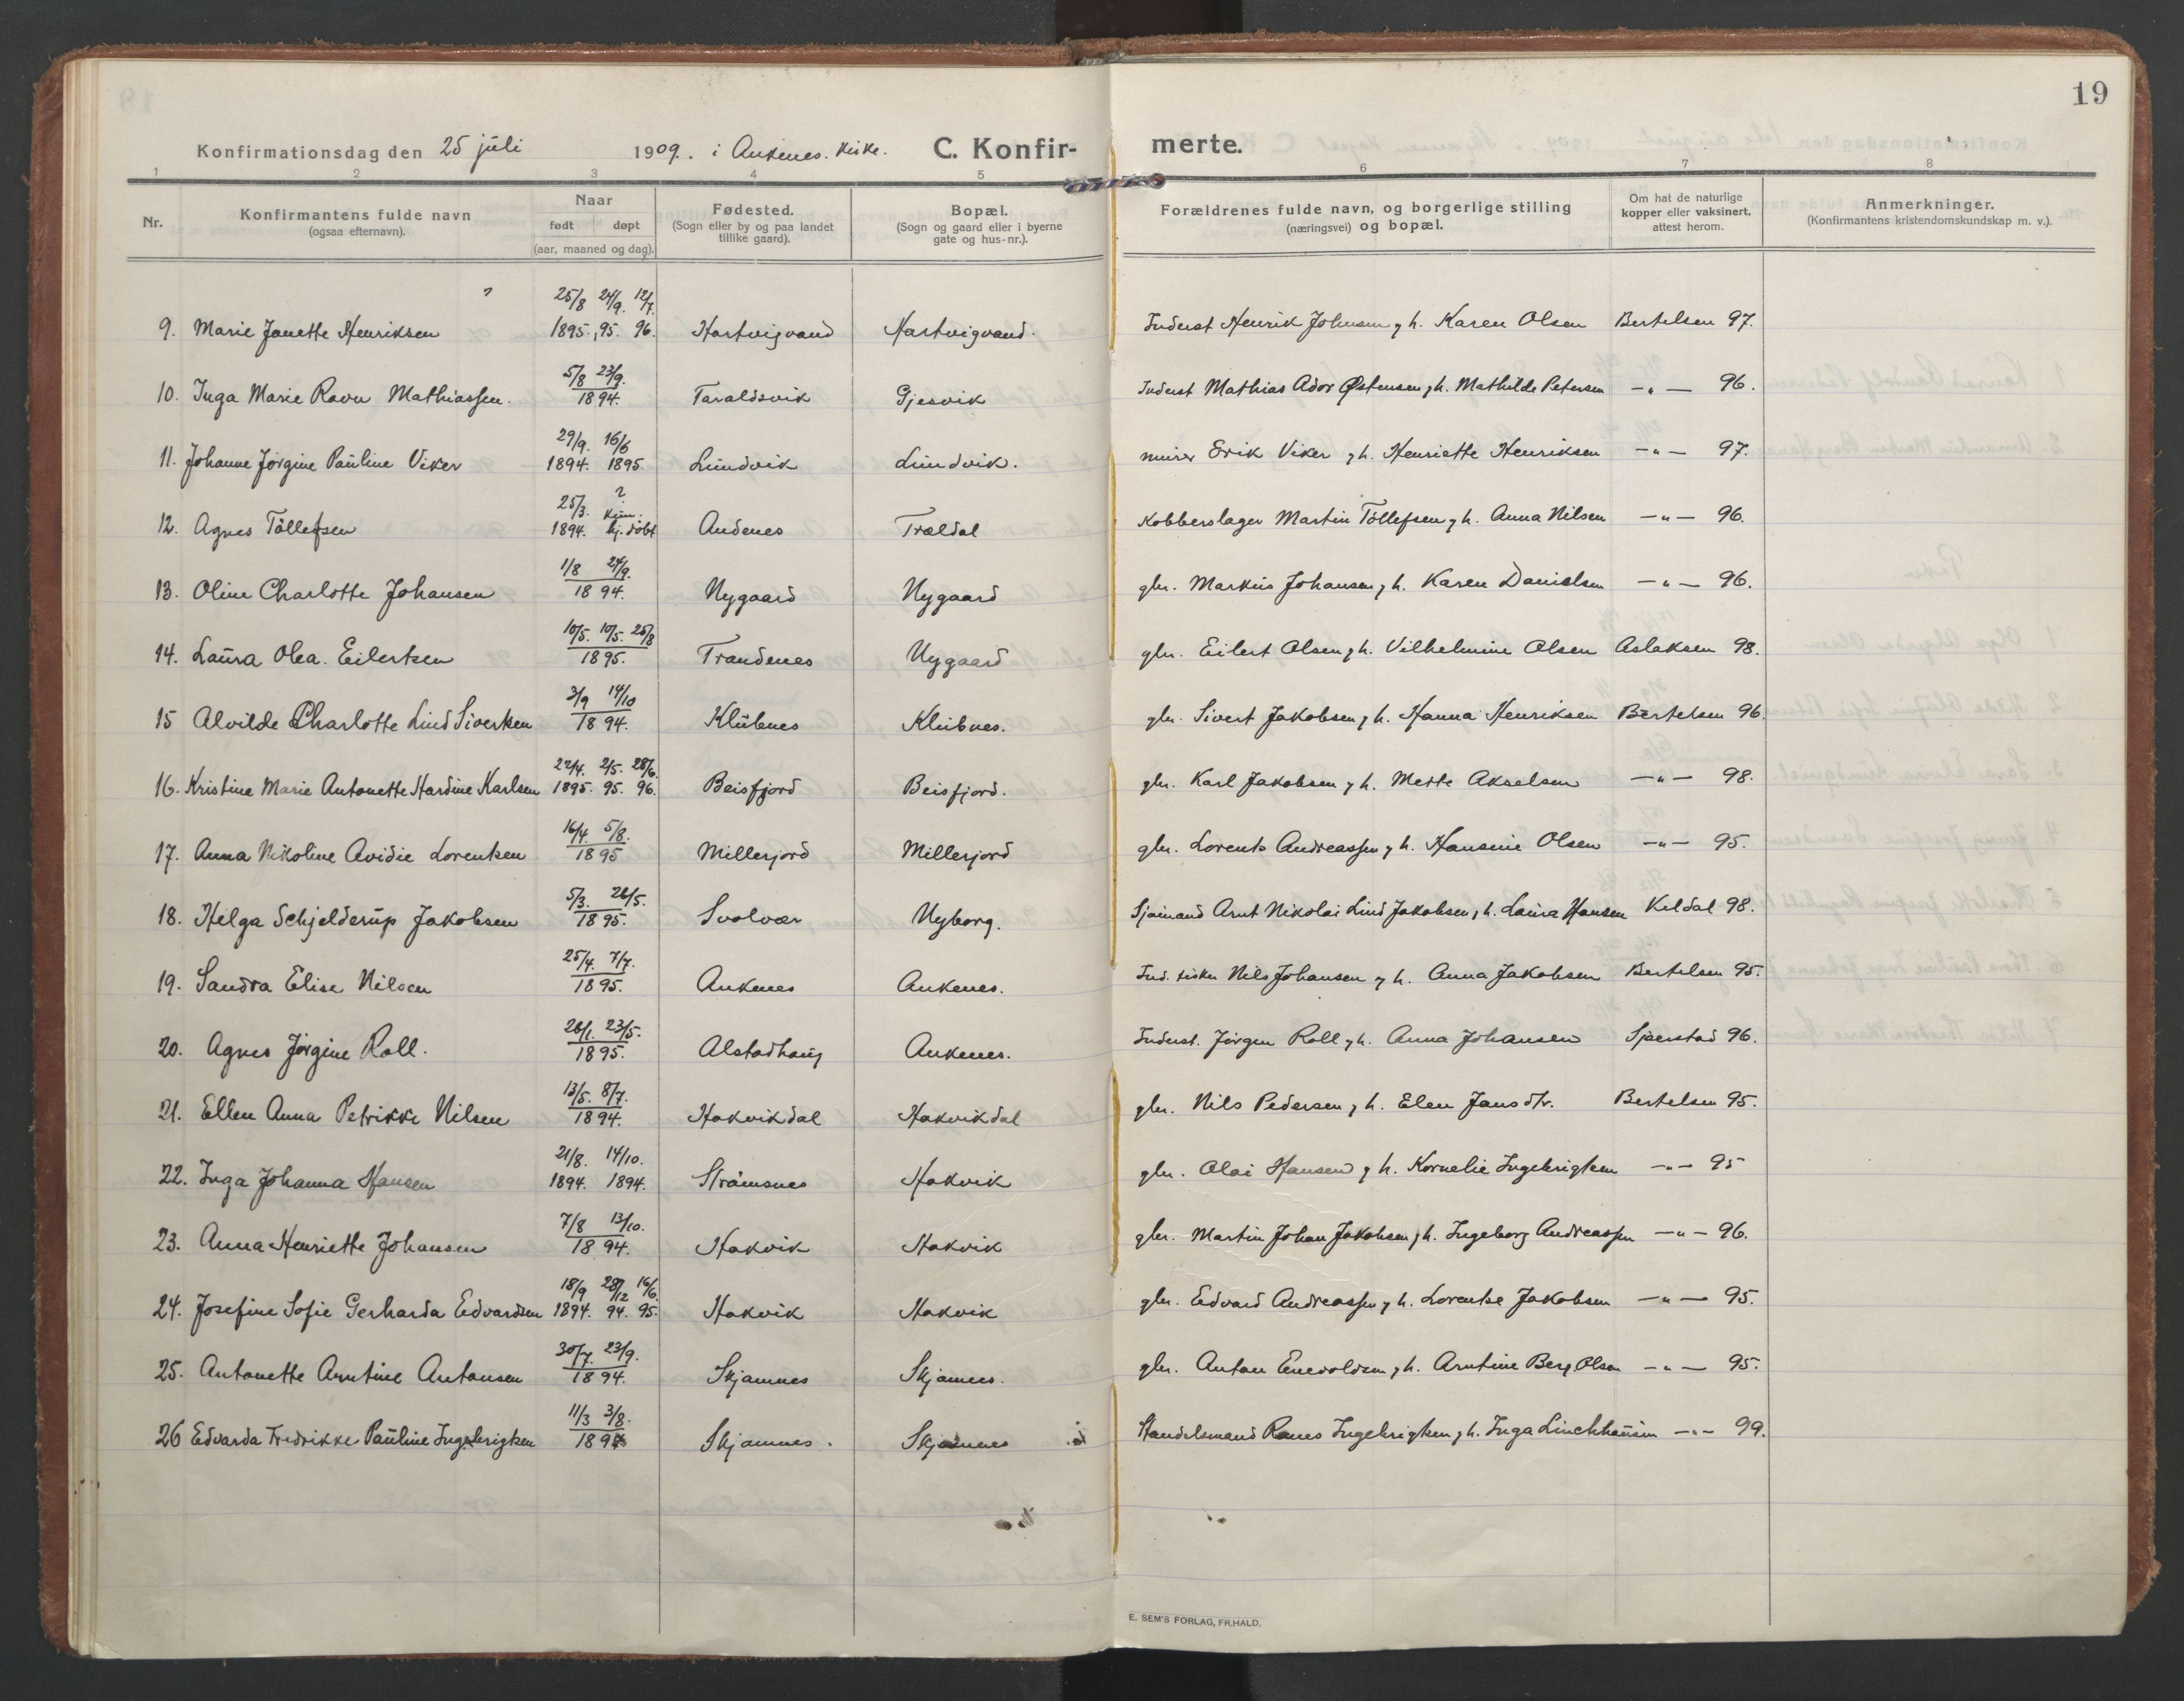 19
Konfirmationsdag den 25 juli 1909. i Ankenes. kirke. C. Konfir- merte.
1 2 3 4 5 6 7 8
Nr. Konfirmantens fulde navn (ogsaa efternavn). Naar født døpt (aar, maaned og dag). Fødested. (Sogn eller by og paa landet tillike gaard). Bopæl. (Sogn og gaard eller i byerne gate og hus-nr.). Forældrenes fulde navn, og borgerlige stilling (næringsvei) og bopæl. Om hat de naturlige kopper eller vaksinert, attest herom. Anmerkninger. (Konfirmantens kristendomskundskap m. v.).
25/8 24/9. 12/7.
9. Marie Janette Henriksen 1895., 95. 96. Hartvigvand Hartvigvand. Inderst Henrik Johnsen, h. Karen Olsen Bertelsen 97.
5/8 23/9.
10. Inga Marie Ravn Mathiassen. 1894. Taraldsvik Gjesvik Inderst Mathias Ador Østensen, h. Mathilde Petersen -"- 96.
29/9. 16/6
11. Johanne Jørgine Pauline Viker 1894. 1895. Lundvik Lundvik. murer Erik Viker, h. Henriette Henriksen -"- 97.
25/3. ?
12. Agnes Töllefsen 1894. hj. döbt Andenes Trældal Kobberslager Martin Töllefsen, h. Anna Nilsen -"- 96.
1/8 24/9.
13. Oline Charlotte Johansen 1894. Nygaard Nygaard gbr. Markus Johansen, h. Karen Danielsen -"- 96.
10/5. 10/5. 25/8
14. Laura Olea. Eilertsen 1895. Trandenes Nygaard gbr. Eilert Olsen, h. Vilhelmine Olsen Aslaksen 98.
3/9 14/10
15 Alvilde Charlotte Lind Sivertsen 1894. Klubnes Klubnes. gbr. Sivert Jakobsen, h. Hanna Henriksen Bertelsen 96.
22/4. 2/5. 28/6.
16. Kristine Marie Antonette Hardine Karlsen 1895. 95. 96. Beisfjord Beisfjord. gbr. Karl Jakobsen, h. Mette Akselsen -"- 98.
16/4. 5/8.
17. Anna Nikoline Avidie Lorentsen 1895 Millerjord Millerjord gbr. Lorents Andreassen, h. Hansine Olsen -"- 95.
5/3. 26/5.
18. Helga Schjelderup Jakobsen 1895. Svolvær Nyborg. Sjømand Arnt Nikolai Lind Jakobsen, h. Laura Hansen Keldal 98.
25/4. 7/7.
19. Sandra Elise Nilsen 1895. Ankenes Ankenes. Ind. fisker Nils Johansen, h. Anna Jakobsen Bertelsen 95.
26/1. 23/5.
20. Agnes Jörgine Roll. 1895. Alstadhaug Ankenes. Inderst. Jörgen Roll, h. Anna Johansen Sjerstad 96.
13/5. 8/7.
21. Ellen Anna Petrikke Nilsen 1894. Hakvikdal Hakvikdal gbr. Nils Pedersen, h. Elen Jansdtr. Bertelsen 95.
21/8. 14/10.
22. Inga Johanna Hansen 1894. 1894. Strömsnes Hakvik gbr. Olai Hansen, h. Kornelie Ingebrigtsen -"- 95
7/8 13/10.
23. Anna Henriette Johansen 1894. Hakvik Hakvik gbr. Martin Johan Jakobsen, h. Ingeborg Andreassen -"- 96.
18/9 28/12 16/6.
24. Josefine Sofie Gerharda Edvardsen 1894. 94. 95. Hakvik Hakvik gbr. Edvard Andreassen, h. Lorentse Jakobsen -"- 95.
30/7. 23/9.
25. Antonette Arntine Antonsen 1894. Skjomnes Skjomnes. gbr. Anton Enevoldsen, h. Arntine Berg Olsen -"- 95.
11/3 3/8.
26 Edvarda Fredrikke Pauline Ingebrigtsen 1894 Skjomnes. Skjomnes Handelsmand Ranes Ingebrigtsen, h. Inga Linchhausen -"- 99.
E. SEM'S FORLAG, FR.HALD.